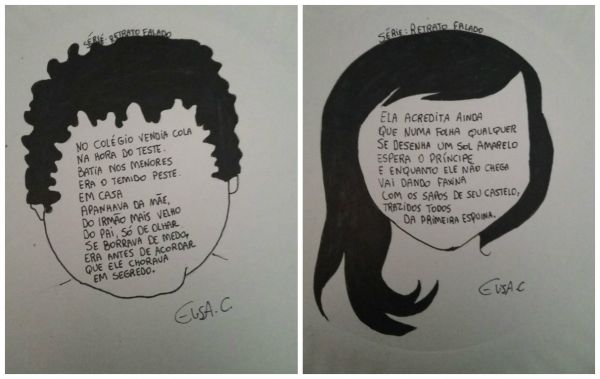 SÉRIE: RETRATO FALADO
NO COLÉGIO VENDIA COLA
NA HORA DO TESTE.
BATIA NOS MENORES
ERA O TEMIDO PESTE.
EM CASA
APANHAVA DA MÃE,
DO IRMÃO MAIS VELHO
DO PAI, SÓ DE OLHAR
SE BORRAVA DE MEDO,
ERA ANTES DE ACORDAR
QUE ELE CHORAVA
EM SEGREDO.
ELISA.C.
SÉRIE: RETRATO FALADO
ELA ACREDITA AINDA
QUE NUMA FOLHA QUALQUER
SE DESENHA UM SOL AMARELO
ESPERA O PRÍNCIPE
E ENQUANTO ELE NÃO CHEGA
VAI DANDO FAXINA
COM OS SAPOS DE SEU CASTELO,
TRAZIDOS TODOS
DA PRIMEIRA ESQUINA.
ELISA.C